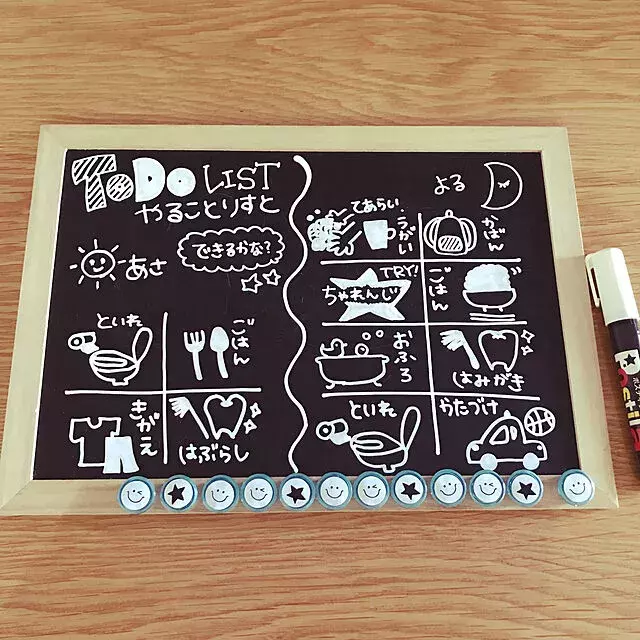 ToDo LIST
やることりすと
できるかな?
あさ
といれ
ごはん
きがえ
はぶらし
よる
てあらい・うがい
かばん
TRY!
ちゃれんじ
ごはん
おふろ
はみがき
といれ
かたづけ